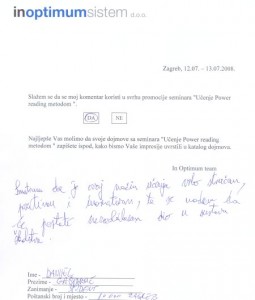 inoptimumsistem d.o.o.
Zagreb, 12.07. - 13.07.2008.
Slažem se da se moj komentar koristi u svrhu promocije seminara "Učenje Power
reading metodom".
DA NE
Najljepše Vas molimo da svoje dojmove sa seminara "Učenje Power reading
metodom" zapišete ispod, kako bismo Vaše impresije uvrstili u katalog dojmova.
In Optimum team
Smatram da je ovaj način učenja vrlo
pozitivan i te se nadam da
će postati dio u
Ime:
Prezime:
Zanimanje: STUDENT
Poštanski broj i mjesto: 10000 ZAGREB